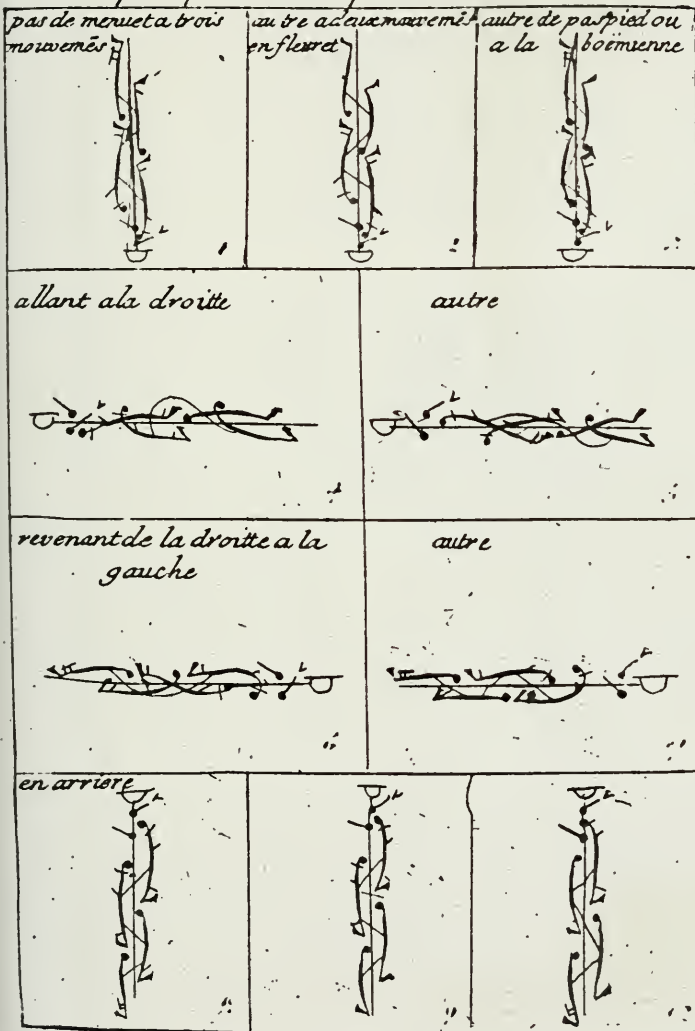 pas de menuet a trois
mouvemẽs
autre a deux mouvemẽs
en fleuret
autre de paspied ou
a la boëmienne
allant a la droitte
autre
revenant de la droitte a la
gauche
autre
en arriere